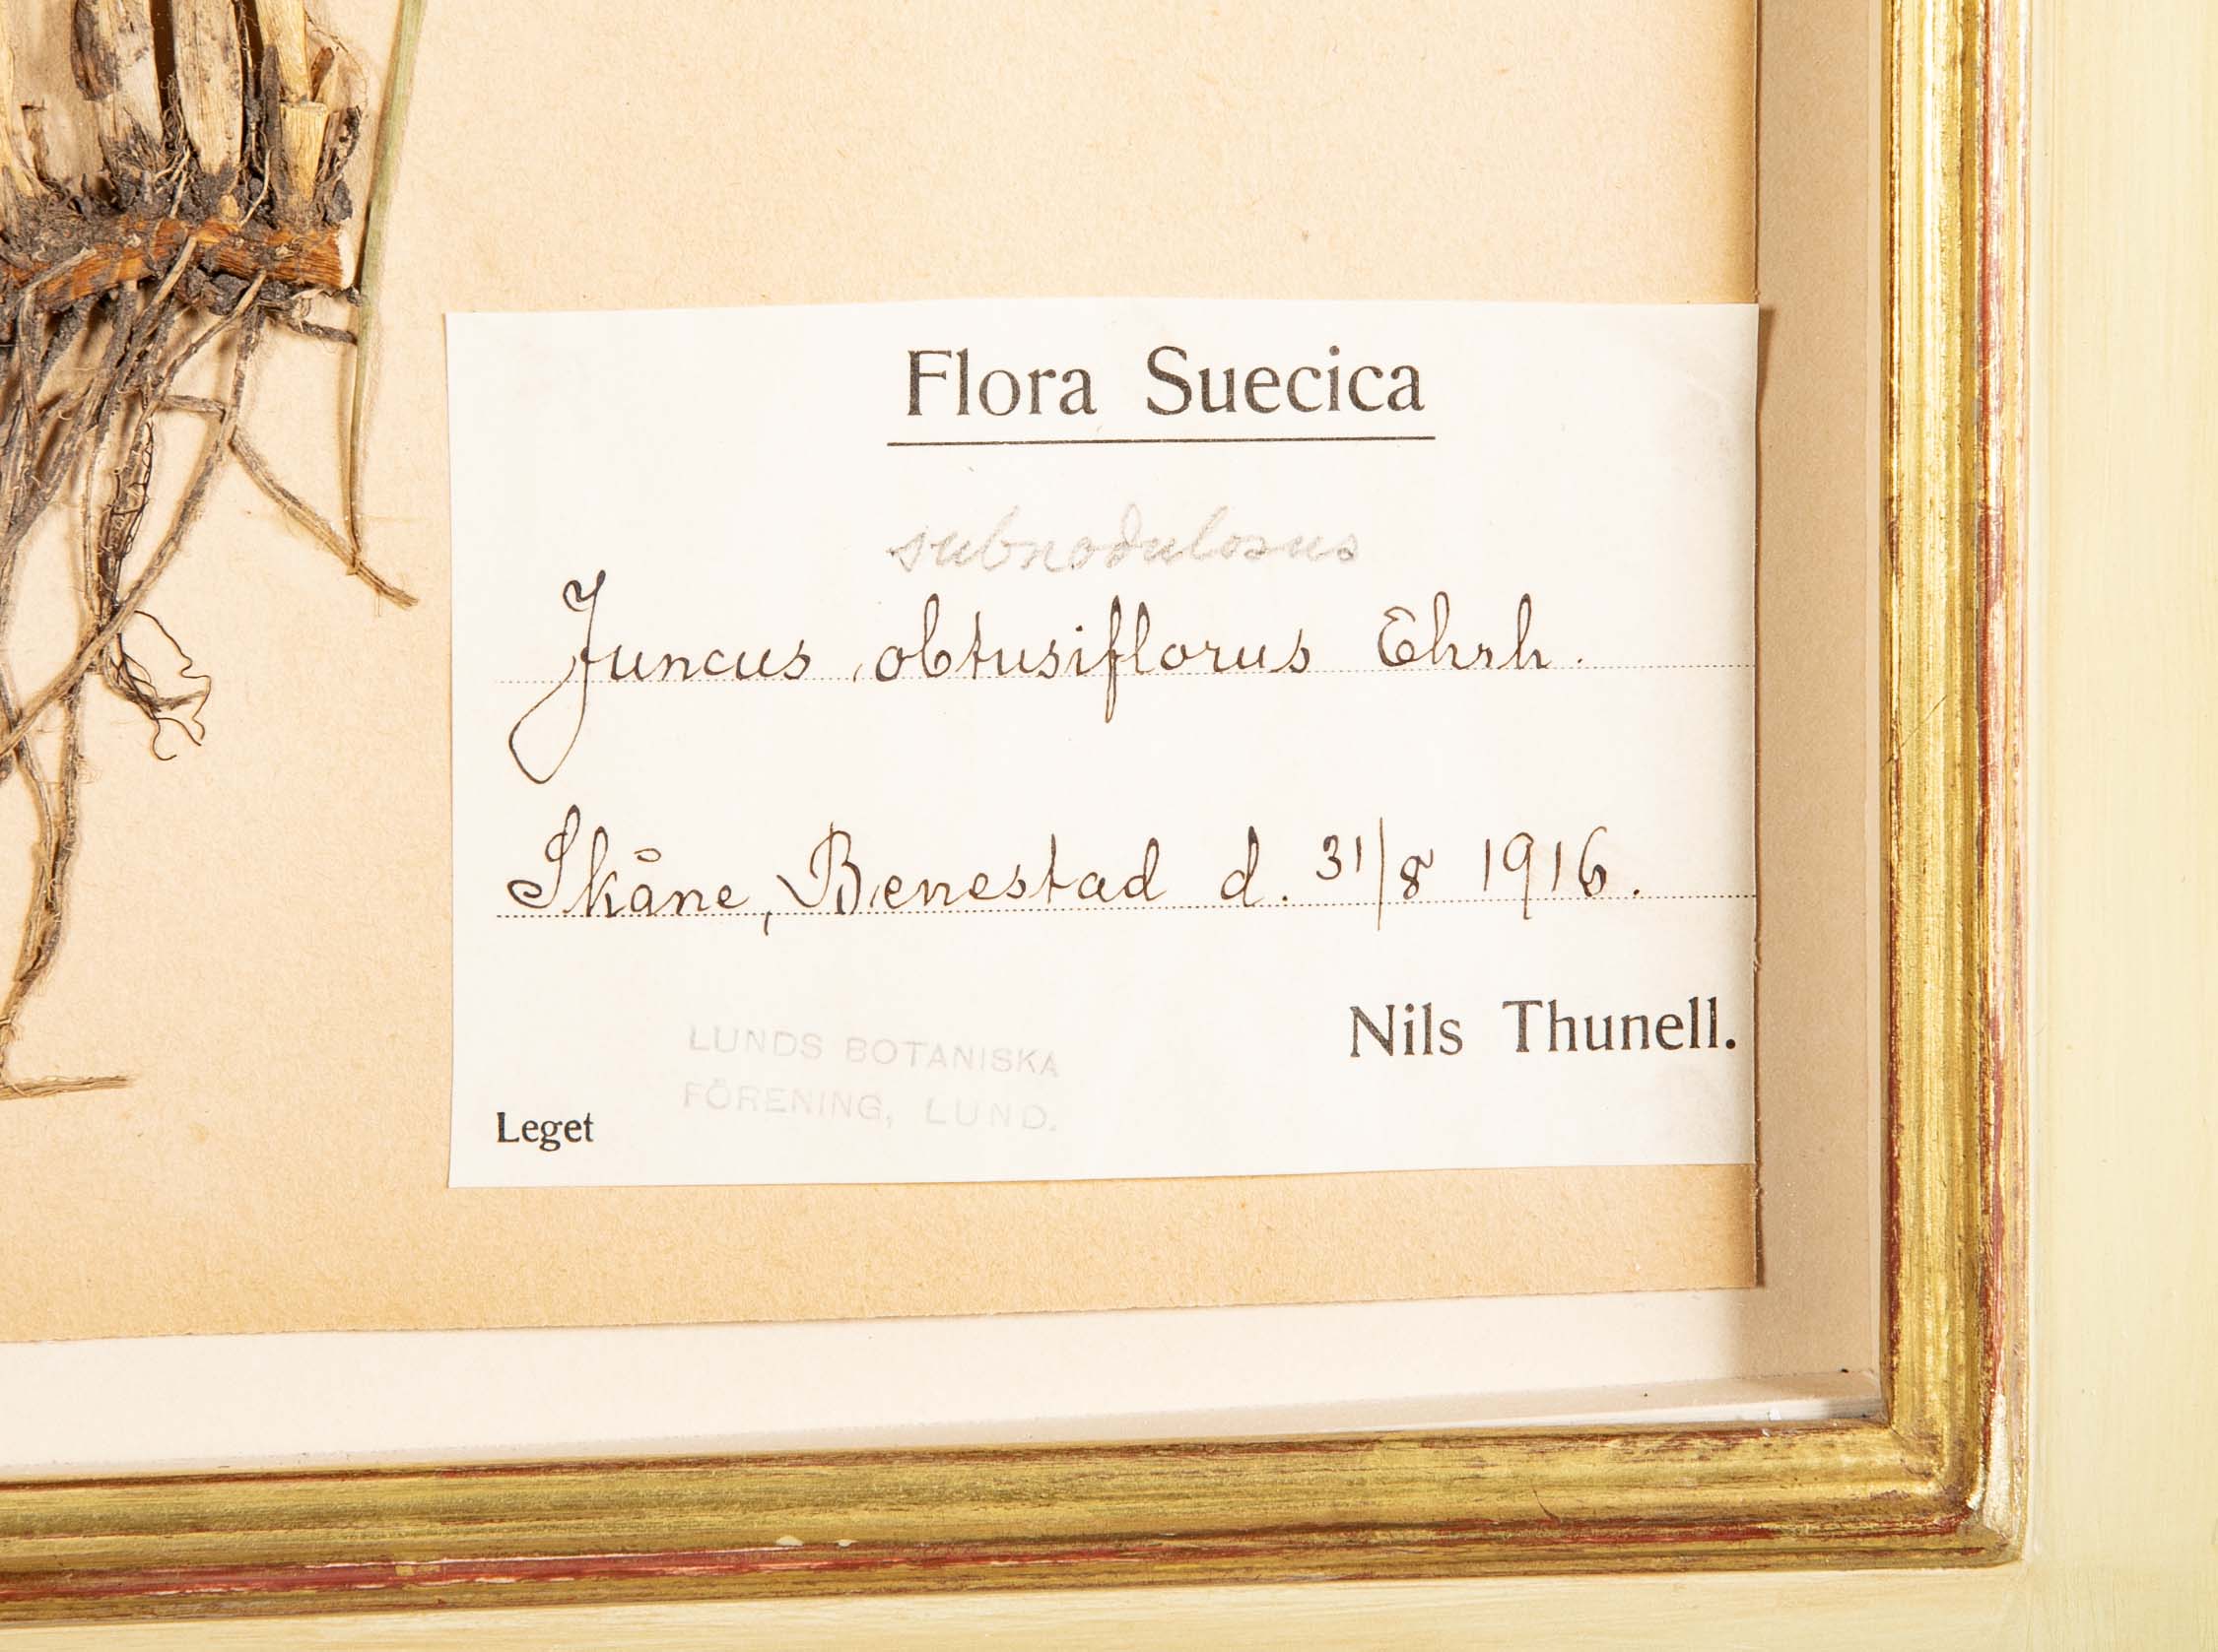 Flora Suecica
subnodulosus
Juncus obtusiflorus Ehrh.
Skåne, Benestad d. 31/8 1916.
Nils Thunell.
LUNDS BOTANISKA
FÖRENING, LUND.
Leget